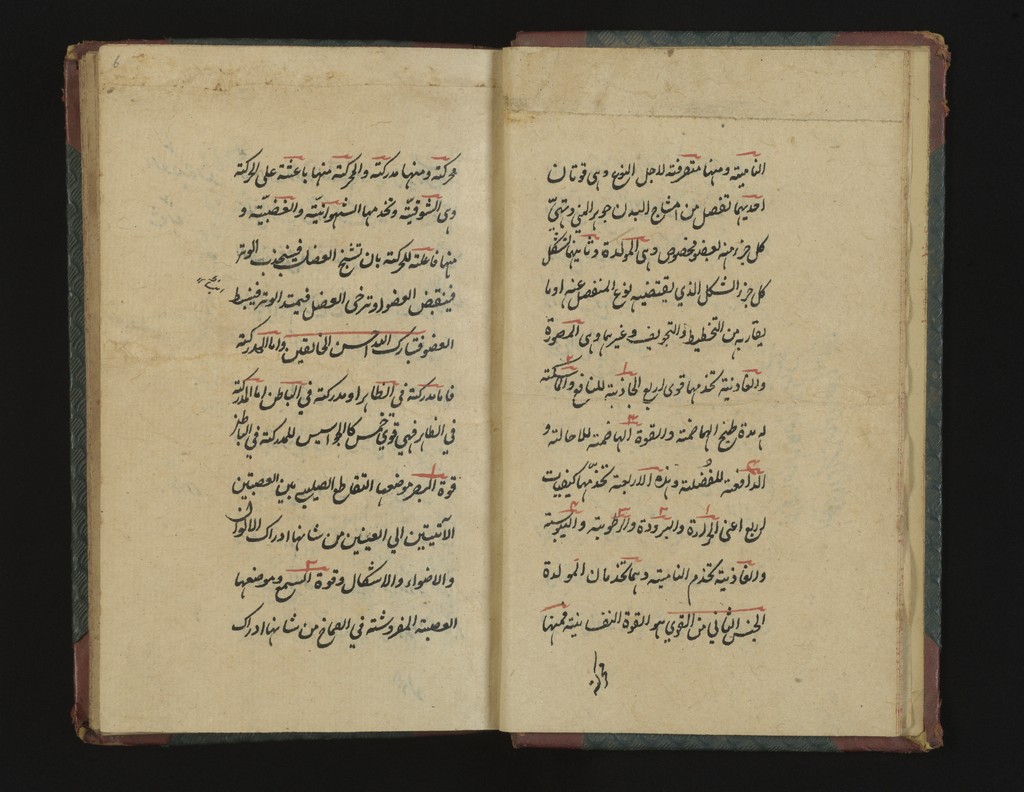 النامية ومنها متصرفة لاجل النوع وهى قوتان
احديهما تفصل من امشاج البدن جوهر المني وتهيّ
كل جزء منه لعضو مخصوص وهى المولدة وثانيهما تشكل
كل جزء الشكل الذي يقتضيه نوع المنفصل عنه او ما
يقاربه من التخطيط والتجويف وغيرهما وهى المصورة
والغاذية تخدمها قوى اربع الجاذبة للنافع والماسكة
له مدة طبخ الهاضمة والقوة الهاضمة للاحالة و
الدافعة للفضلة وهذه الاربعة تخدمها كيفيات
اربع اعنى الحرارة والبرودة والرطوبة واليبوسة
والغاذية تخدم النامية وهما تخدمان المولدة
الجنس الثانى من القوي هو القوة النفسانية فمنها
محركة
محركة ومنها مدركة والمحركة منها باعثة على الحركة
وهى الشوقية وتخدمها الشهوانية والغضبية و
منها فاعلة للحركة بان تشنج العضل فينجذب الوتر
فينقبض العضو او ترخى العضل فيمتد الوتر فينبسط
العضو فتبارك الله احسن الخالقين واما المدركة
فاما مدركة في الظاهر او مدركة في الباطن اما المدركة
في الظاهر فهي قوي خمس كالجواسيس للمدركة في الباطن
قوة البصر موضعها التقاطع الصليبي بين العصبتين
الآتيتين الي العينين من شانها ادراك الالوان
والاضواء والاشكال وقوة السمع وموضعها
العصبة المفروشة في الصماخ من شانها ادراك
6